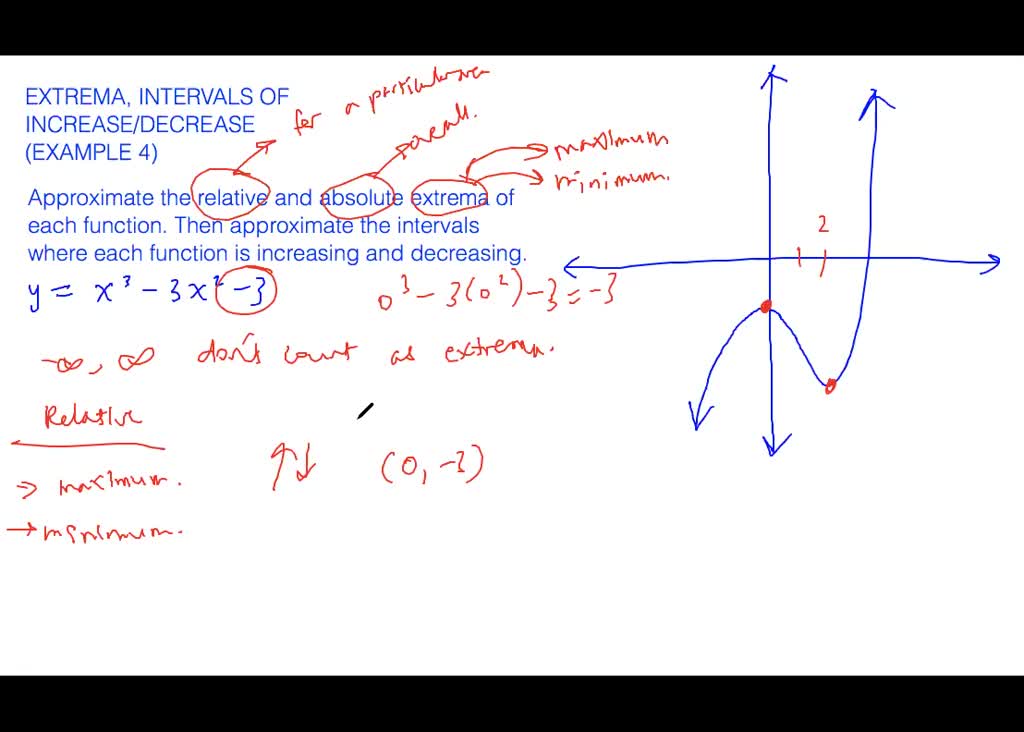 EXTREMA, INTERVALS OF
INCREASE/DECREASE
(EXAMPLE 4)
for a particular area
overall.
maximum
minimum.
Approximate the relative and absolute extrema of
each function. Then approximate the intervals
where each function is increasing and decreasing.
y = x³ - 3x² - 3
0³ - 3(0²) - 3 = -3
-∞, ∞ don't count as extrema.
Relative
→ maximum.
→ minimum.
↑↓ (0, -3)
2